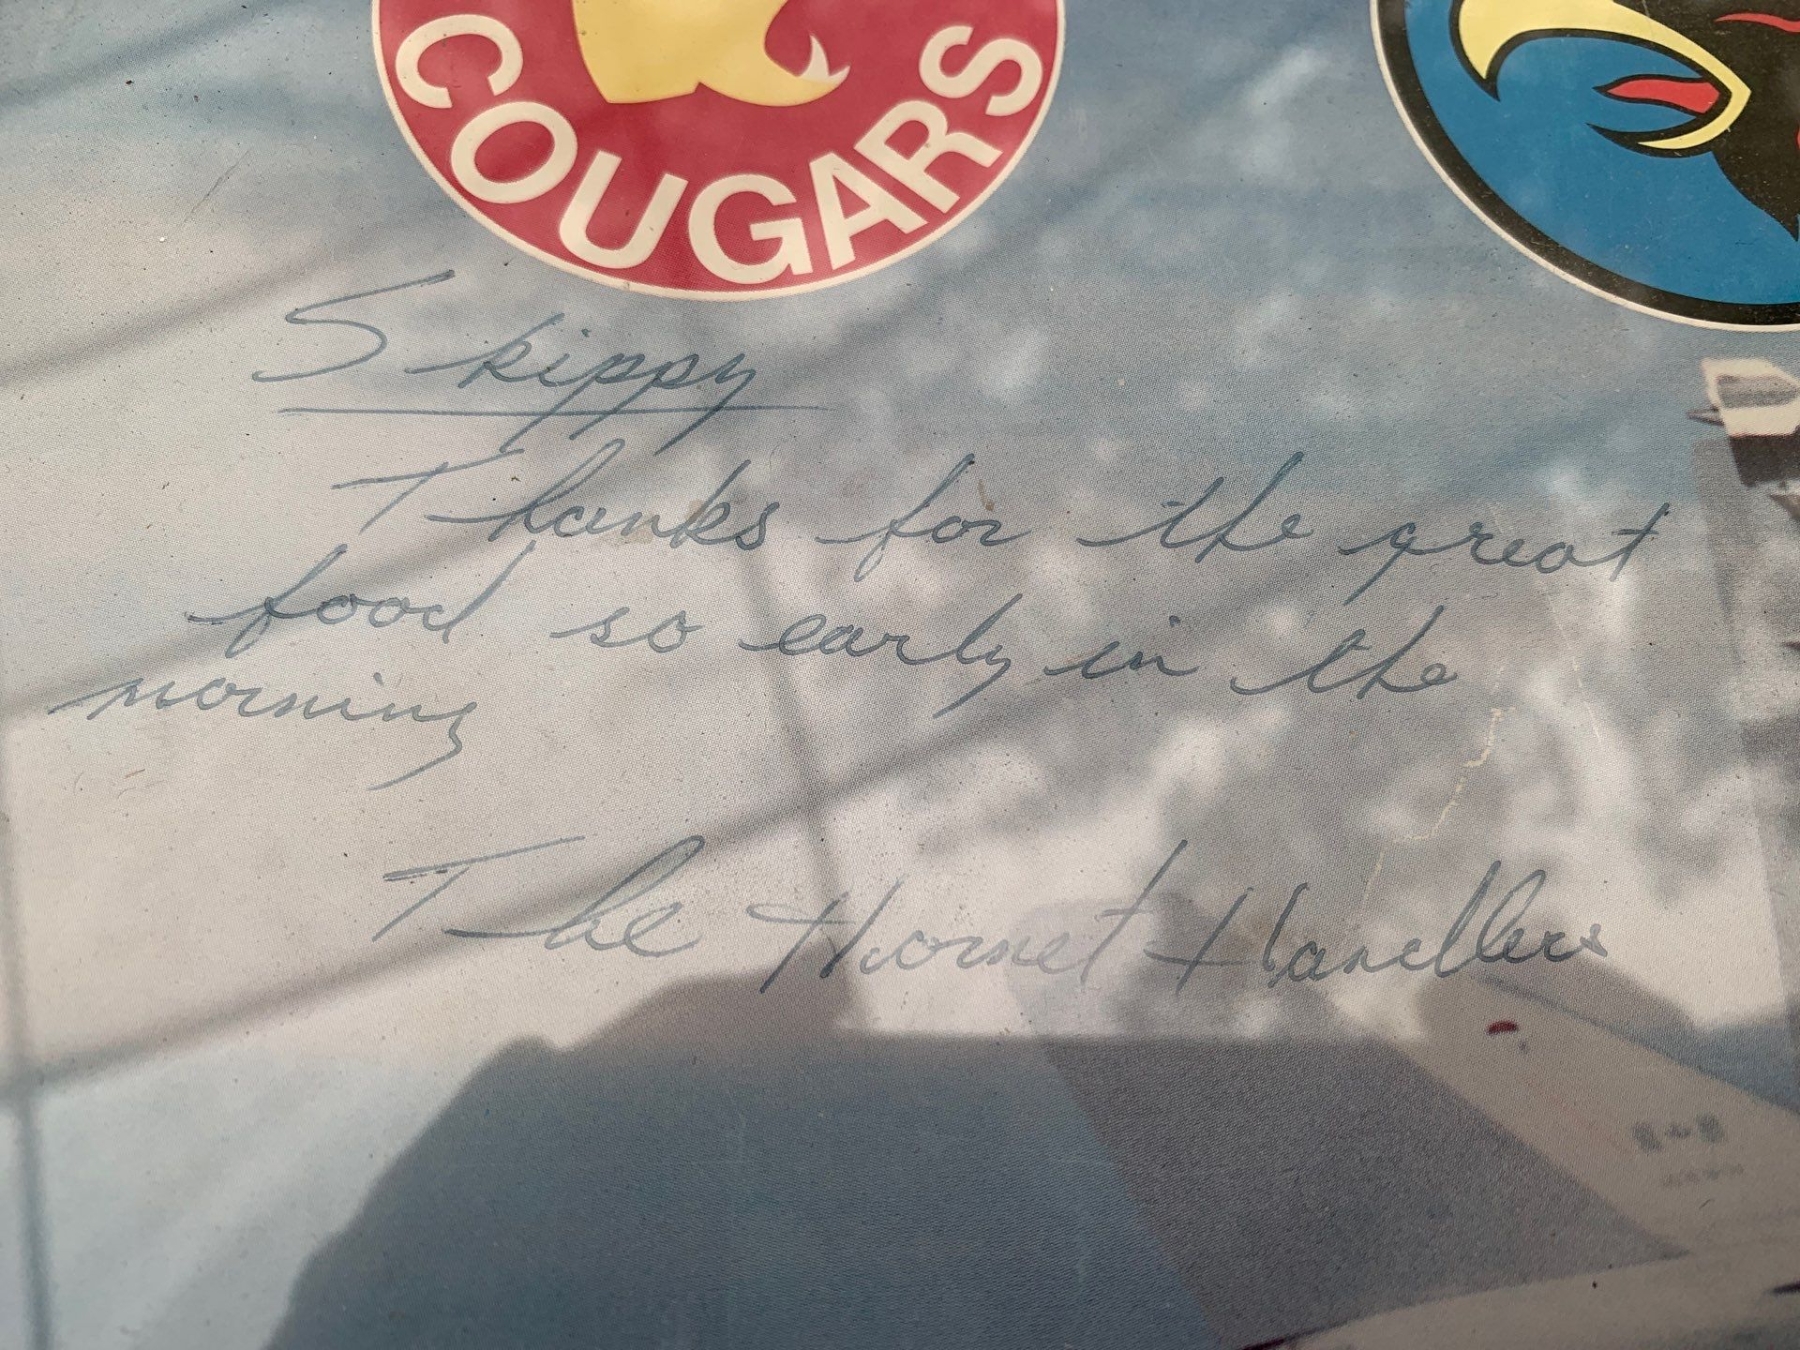 COUGARS
Skippy
Thanks for the great
food so early in the
morning
The Hornet Handlers